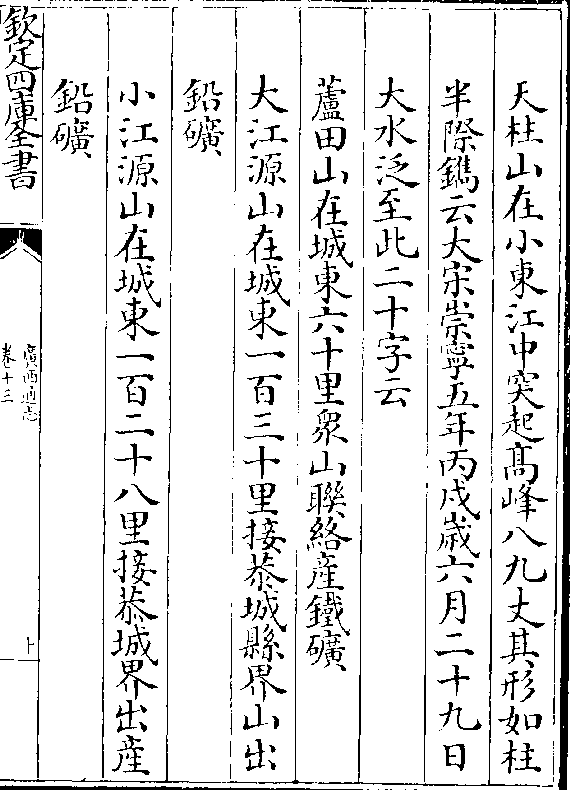 天柱山在小東江中突起髙峰八九丈其形如柱
半際鐫云大宋崇寧五年丙戍嵗六月二十九日
大水泛至此二十字云
蘆田山在城東六十里衆山聯絡産鐵礦
大江源山在城東一百三十里接恭城縣界山出
鉛礦
小江源山在城東一百二十八里接恭城界出産
鉛礦
欽定四庫全書
廣西通志
卷十三